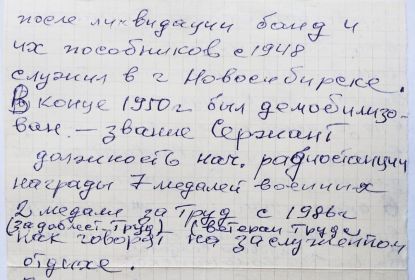 после ликвидации банд и
их пособников с 1948
служил в г Новосибирске.
В конце 1950 г был демобилизо-
ван. – звание Сержант
должность нач. радиостанции
награды 7 медалей военных
2 медали за Труд с 1986 г
(за доблест-труд) (ветеран Труда
как говорят на заслуженном
отдыхе.